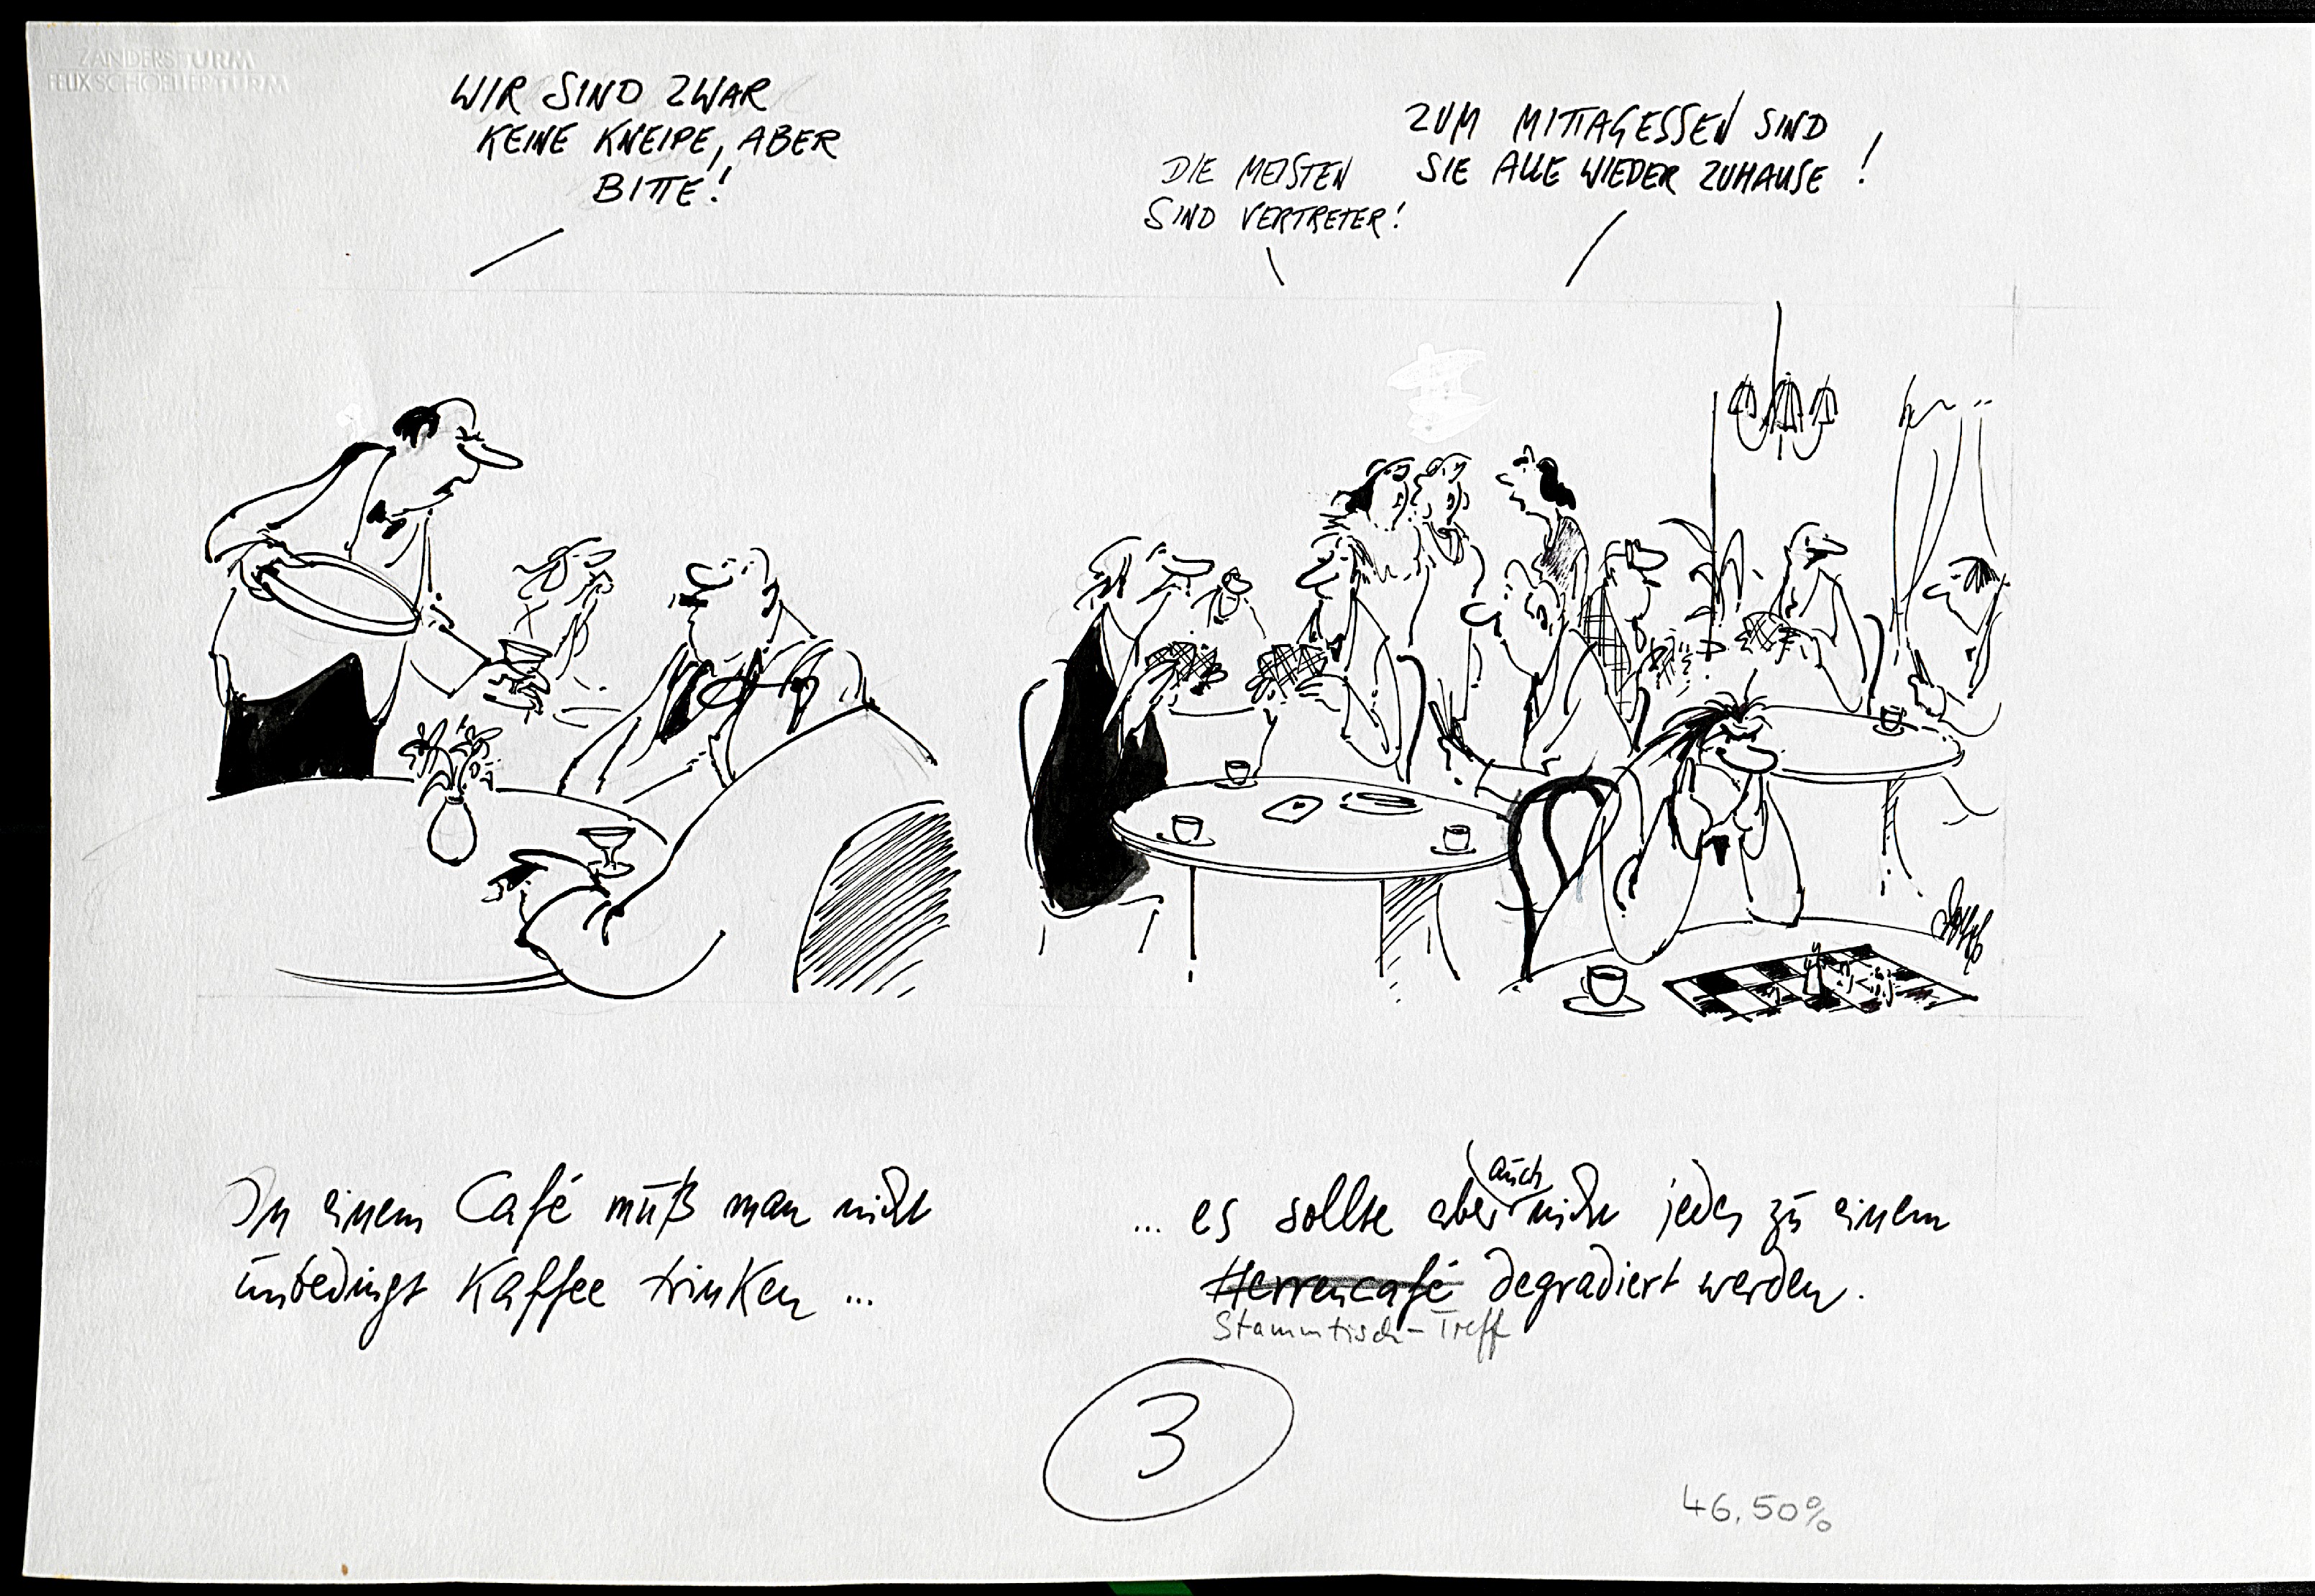 ZANDERS TURM
FELIX SCHOELLER TURM
WIR SIND ZWAR
KEINE KNEIPE, ABER
BITTE!
DIE MEISTEN
SIND VERTRETER!
ZUM MITTAGESSEN SIND
SIE ALLE WIEDER ZUHAUSE!
In einem Café muß man nicht
unbedingt Kaffee trinken ...
auch
... es sollte aber nicht jedes zu einem
Herrencafé degradiert werden.
Stammtisch-Treff
3
46,50%